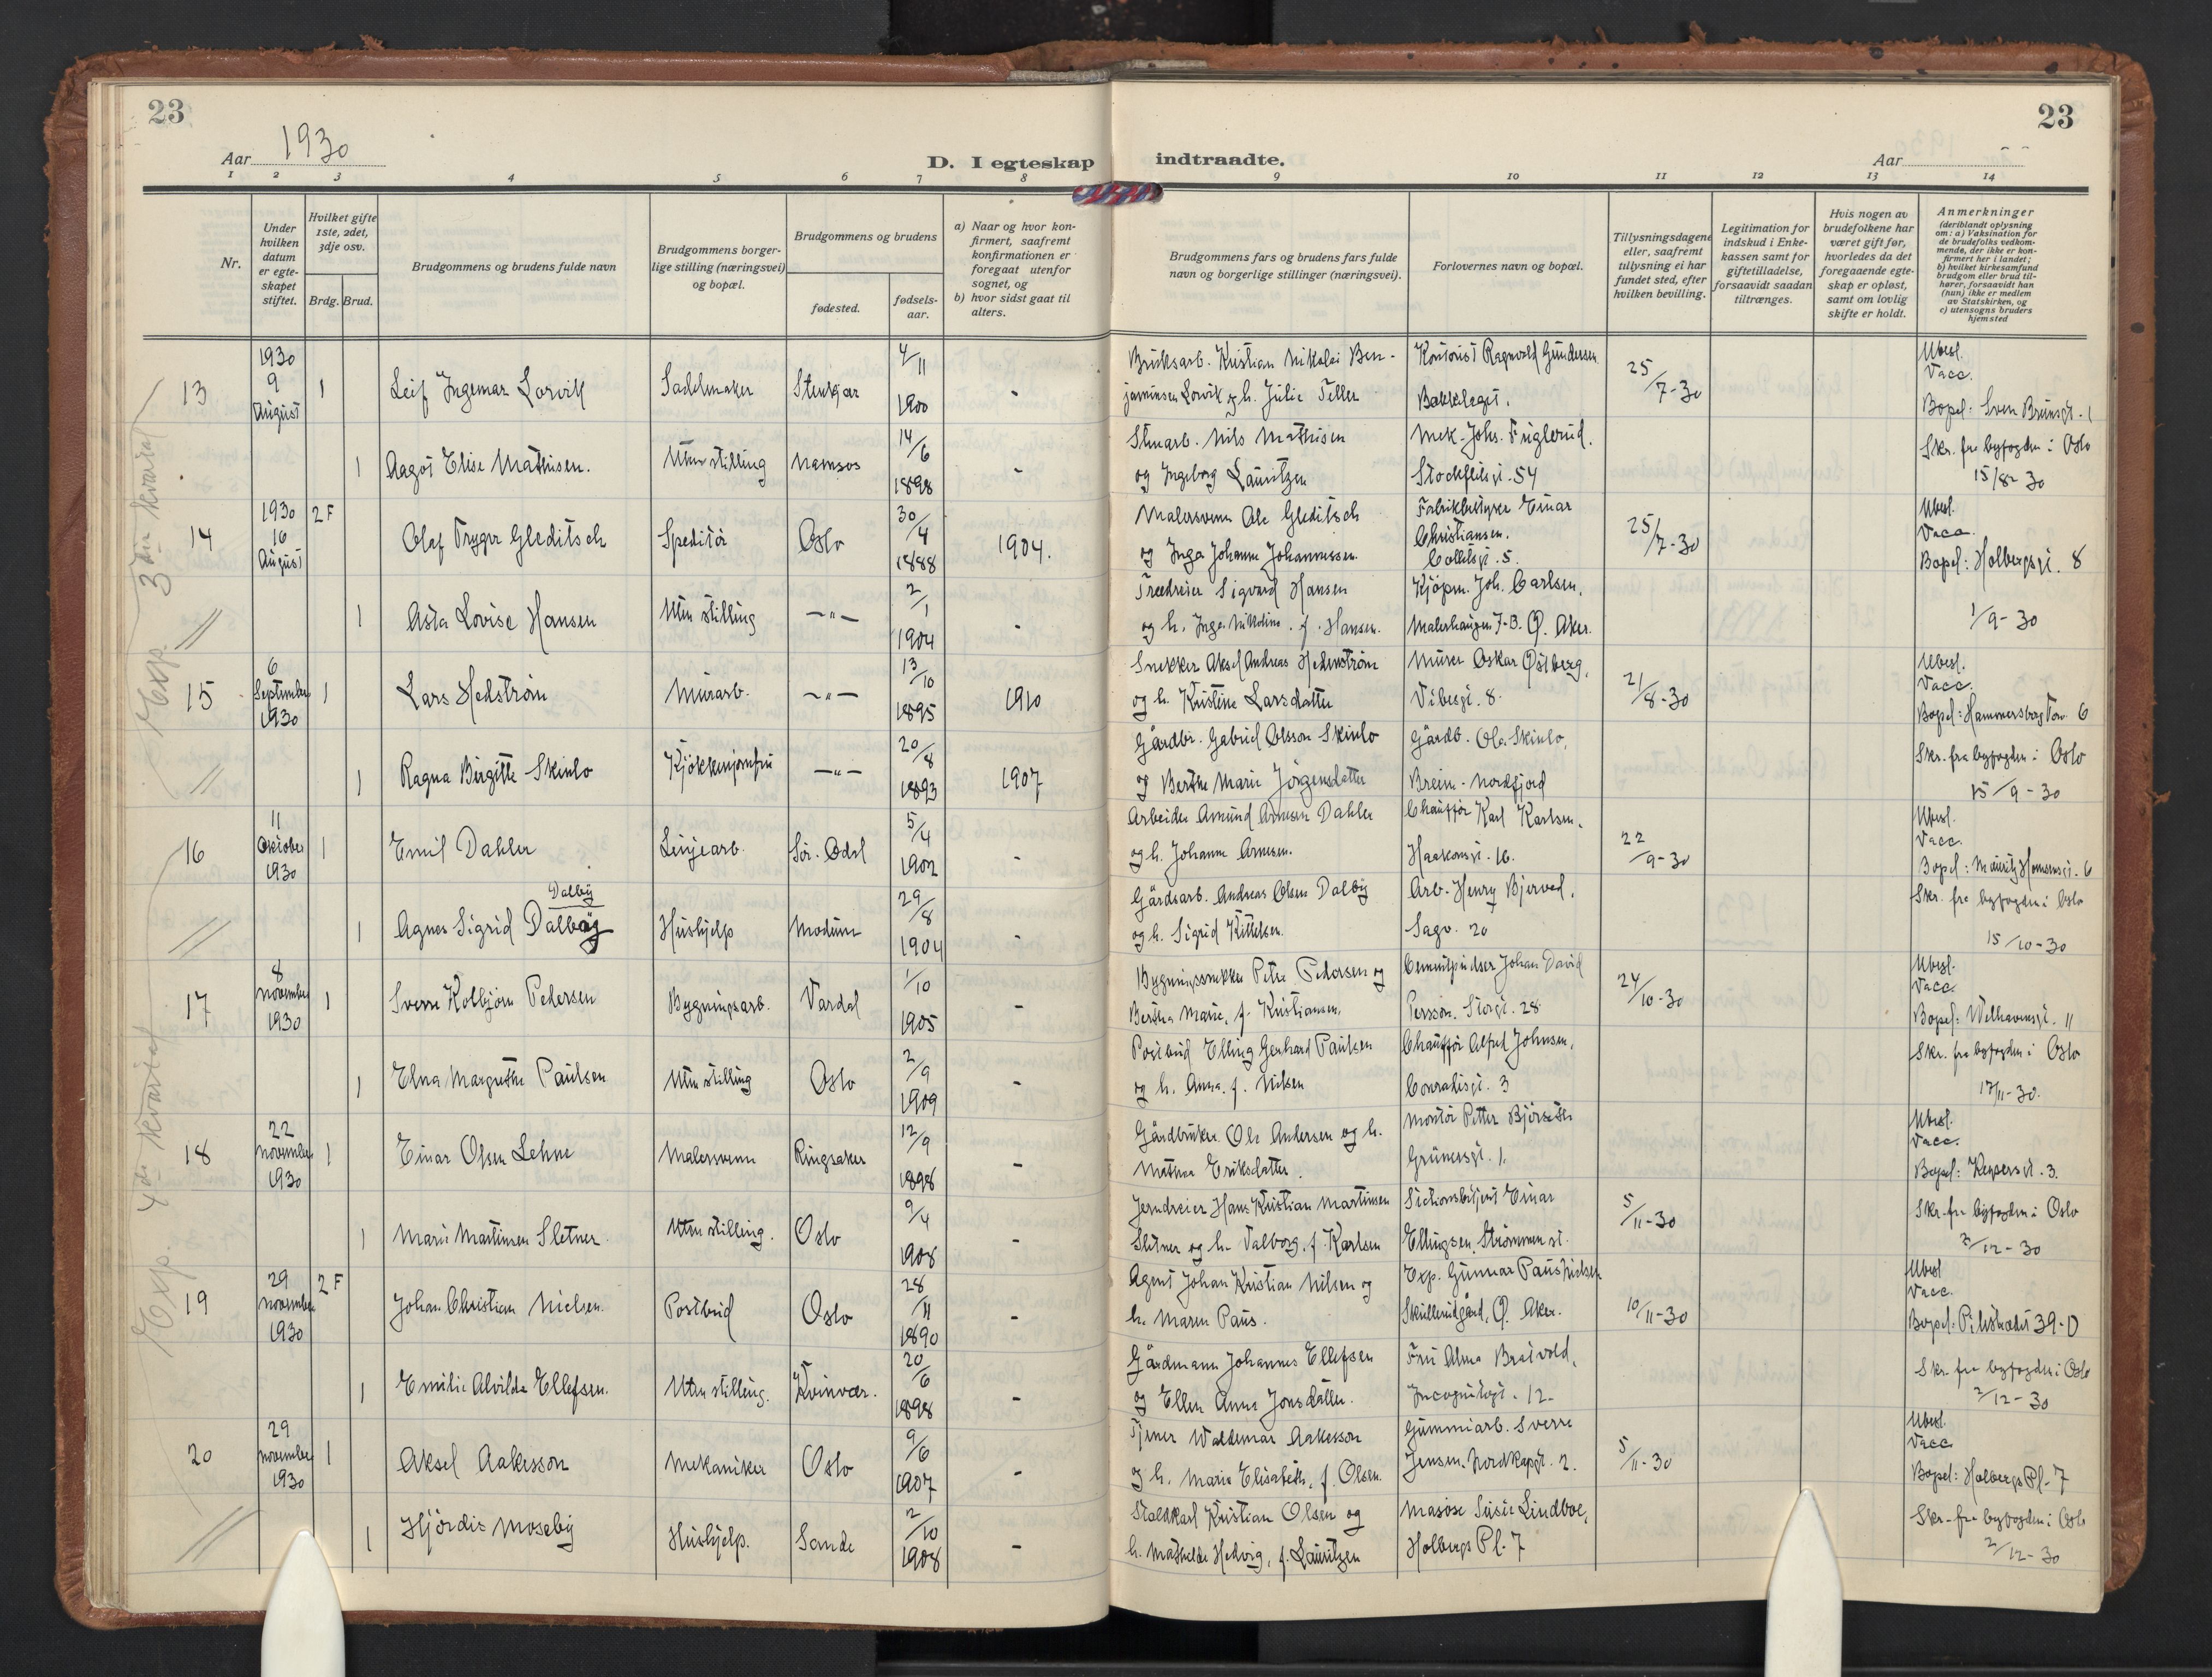 23
23
Aar 1930
D. I egteskap indtraadte.
Aar
1 2 3 4 5 6 7 8 9 10 11 12 13 14
Nr.
Under hvilken datum er egteskapet stiftet.
Hvilket gifte 1ste, 2det, 3dje osv.
Brdg. Brud.
Brudgommens og brudens fulde navn
Brudgommens borgerlige stilling (næringsvei) og bopæl.
Brudgommens og brudens
fødested.
fødselsaar.
a) Naar og hvor konfirmert, saafremt konfirmationen er foregaat utenfor sognet, og
b) hvor sidst gaat til alters.
Brudgommens fars og brudens fars fulde navn og borgerlige stillinger (næringsvei).
Forlovernes navn og bopæl.
Tillysningsdagene eller, saafremt tillysning ei har fundet sted, efter hvilken bevilling.
Legitimation for indskud i Enkekassen samt for giftetilladelse, forsaavidt saadan tiltrænges.
Hvis nogen av brudefolkene har været gift før, hvorledes da det foregaaende egteskap er opløst, samt om lovlig skifte er holdt.
Anmerkninger (deriblandt oplysning om: a) Vaksination for de brudefolks vedkommende, der ikke er konfirmert her i landet; b) hvilket kirkesamfund brudgom eller brud tilhører, forsaavidt han (hun) ikke er medlem av Statskirken, og c) utensogns bruders hjemsted
3die kvartal
Exp.
13 1930 9 August 1 Leif Ingemar Lorvik Sadelmaker Stenkjær 4/11 1900 - Bruksarb. Kristian Nikolai Benjaminsen Lorvik og h. Julie Teller Kontorist Ragnvald Gundersen Bækkelaget. 25/7-30 Ubesl. Vacc. Bopel: Sven Brunsgt. 1
1 Aagot Elise Mathisen. Uten stilling Namsos 14/6 1898 - Stuarb. Nils Mathisen og Ingeborg Lauritzen Mek. Johs. Fuglerud. Stockfletsgt. 54 Skr. fra byfogden i Oslo 15/8-30
14 1930 16 August 2 F Olaf Trygve Gleditsch Speditör Oslo 30/4 1888 1904. Malersvenn Ole Gleditsch og Inga Johanne Johannessen. Fabrikbestyrer Einar Christiansen. Collettsgt. 5. 25/7-30 Ubesl. Vacc. Bopel: Holbergsgt. 8
1 Asta Lovise Hansen Uten stilling -"- 2/1 1904 - Trædreier Sigvard Hansen og h. Inga Nikoline. f. Hansen. Kjøpm. Joh. Carlsen. Malerhaugen 7-B. Ø. Aker. 1/9-30
15 6 September 1930 1 Lars Hedström Murarb. -"- 13/10 1895 1910 Snekker Aksel Andreas Hedenström og h. Kristine Larsdatter Murer Oskar Østberg, Vibesgt. 8. 21/8-30 Ubesl. Vacc. Bopel: Hammersborg Torv 6
1 Ragna Birgitte Skinlo Kjökkenjomfru -"- 20/8 1893 1907 Gårdbr. Gabriel Olsson Skinlo og Berthe Marie Jörgensdatter Gårdb. Ola Skinlo, Breim - Nordfjord Skr. fra byfogden i Oslo 15/9-30
4de kvartal
Exp.
16 11 Oktober 1930 1 Emil Dahler Linjearb. Sör. Odal 5/4 1902 - Arbeider Amund Arnesen Dahler og h. Johanne Arnesen. Chauffør Karl Karlsen. Haakonsgt. 16. 22/9-30 Ubesl. Vacc. Bopel: Mauritz Hansensgt. 6
Dalby
1 Agnes Sigrid Dalbåg Hushjelp Modum 29/8 1904 - Gårdsarb. Andreas Olsen Dalby og h. Sigrid Kittelsen. Arb. Henry Bjerved. Sagv. 20 Skr. fra byfogden i Oslo 15/10-30
17 8 November 1930 1 Sverre Kolbjörn Pedersen Bygningsarb. Vardal 1/10 1905 - Bygningssnekker Peter Pedersen og Bertha Marie, f. Kristiansen. Cementpudser Johan David Persson. Storgt. 28 24/10-30 Ubesl. Vacc. Bopel: Welhavensgt. 11
1 Elna Margrethe Paulsen Uten stilling Oslo 2/9 1909 - Postbud Elling Gerhard Paulsen og h. Anna. f. Nilsen Chauffør Alfred Johnsen, Conradisgt. 3 Skr. fra byfogden i Oslo 17/11-30.
18 22 November 1930 1 Einar Olsen Lehne Malersvenn Ringsaker 12/9 1898 - Gårdbruker Ole Andersen og h. Mathea Eriksdatter. Montör Petter Björseth Grünersgt. 1. Ubesl. Vacc. Bopel: Keysersgt. 3.
1 Marie Martinsen Sletner. Uten stilling. Oslo 9/4 1908 - Jerndreier Hans Kristian Martinsen Sletner og h. Valborg, f. Karlsen Einar Ellingsen. Strømmen st. 5/11-30 Skr. fra byfogden i Oslo 2/12-30
19 29 November 1930 2 F Johan Christian Nielsen. Postbud Oslo 28/11 1890 - Agent Johan Kristian Nilsen og h. Maren Paus. Exp. Gunnar Paus Nielsen Skullerudgård, Ø. Aker. 10/11-30 Ubesl Vacc. Bopel: Pilestrædet 39-D
1 Emilie Alvilde Ellefsen. Uten stilling. Kvinvær. 20/6 1898 - Gårdmann Johannes Ellefsen og Ellen Anna Jonsdatter. Fru Alma Bratvold. Incognitogt. 12. Skr. fra byfogden i Oslo 2/12-30
20 29 November 1930 1 Aksel Aakesson Mekaniker Oslo 9/6 1907 - Tjener Waldemar Aakesson og h. Marie Elisabeth, f. Olsen. Gummiarb. Sverre Jensen. Nordkapgt. 2. 5/11-30 Ubesl. Vacc. Bopel: Holbergs Pl. 7
1 Hjördis Moseby Hushjelp. Sande 2/10 1908 - Staldkarl Kristian Olsen og h. Mathilde Hedvig, f. Lauritzen Masøse Susie Lindboe, Holbergs Pl. 7 Skr. fra byfogden i Oslo 2/12-30